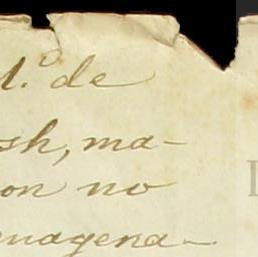 de
sh, ma-
on no
enagena-